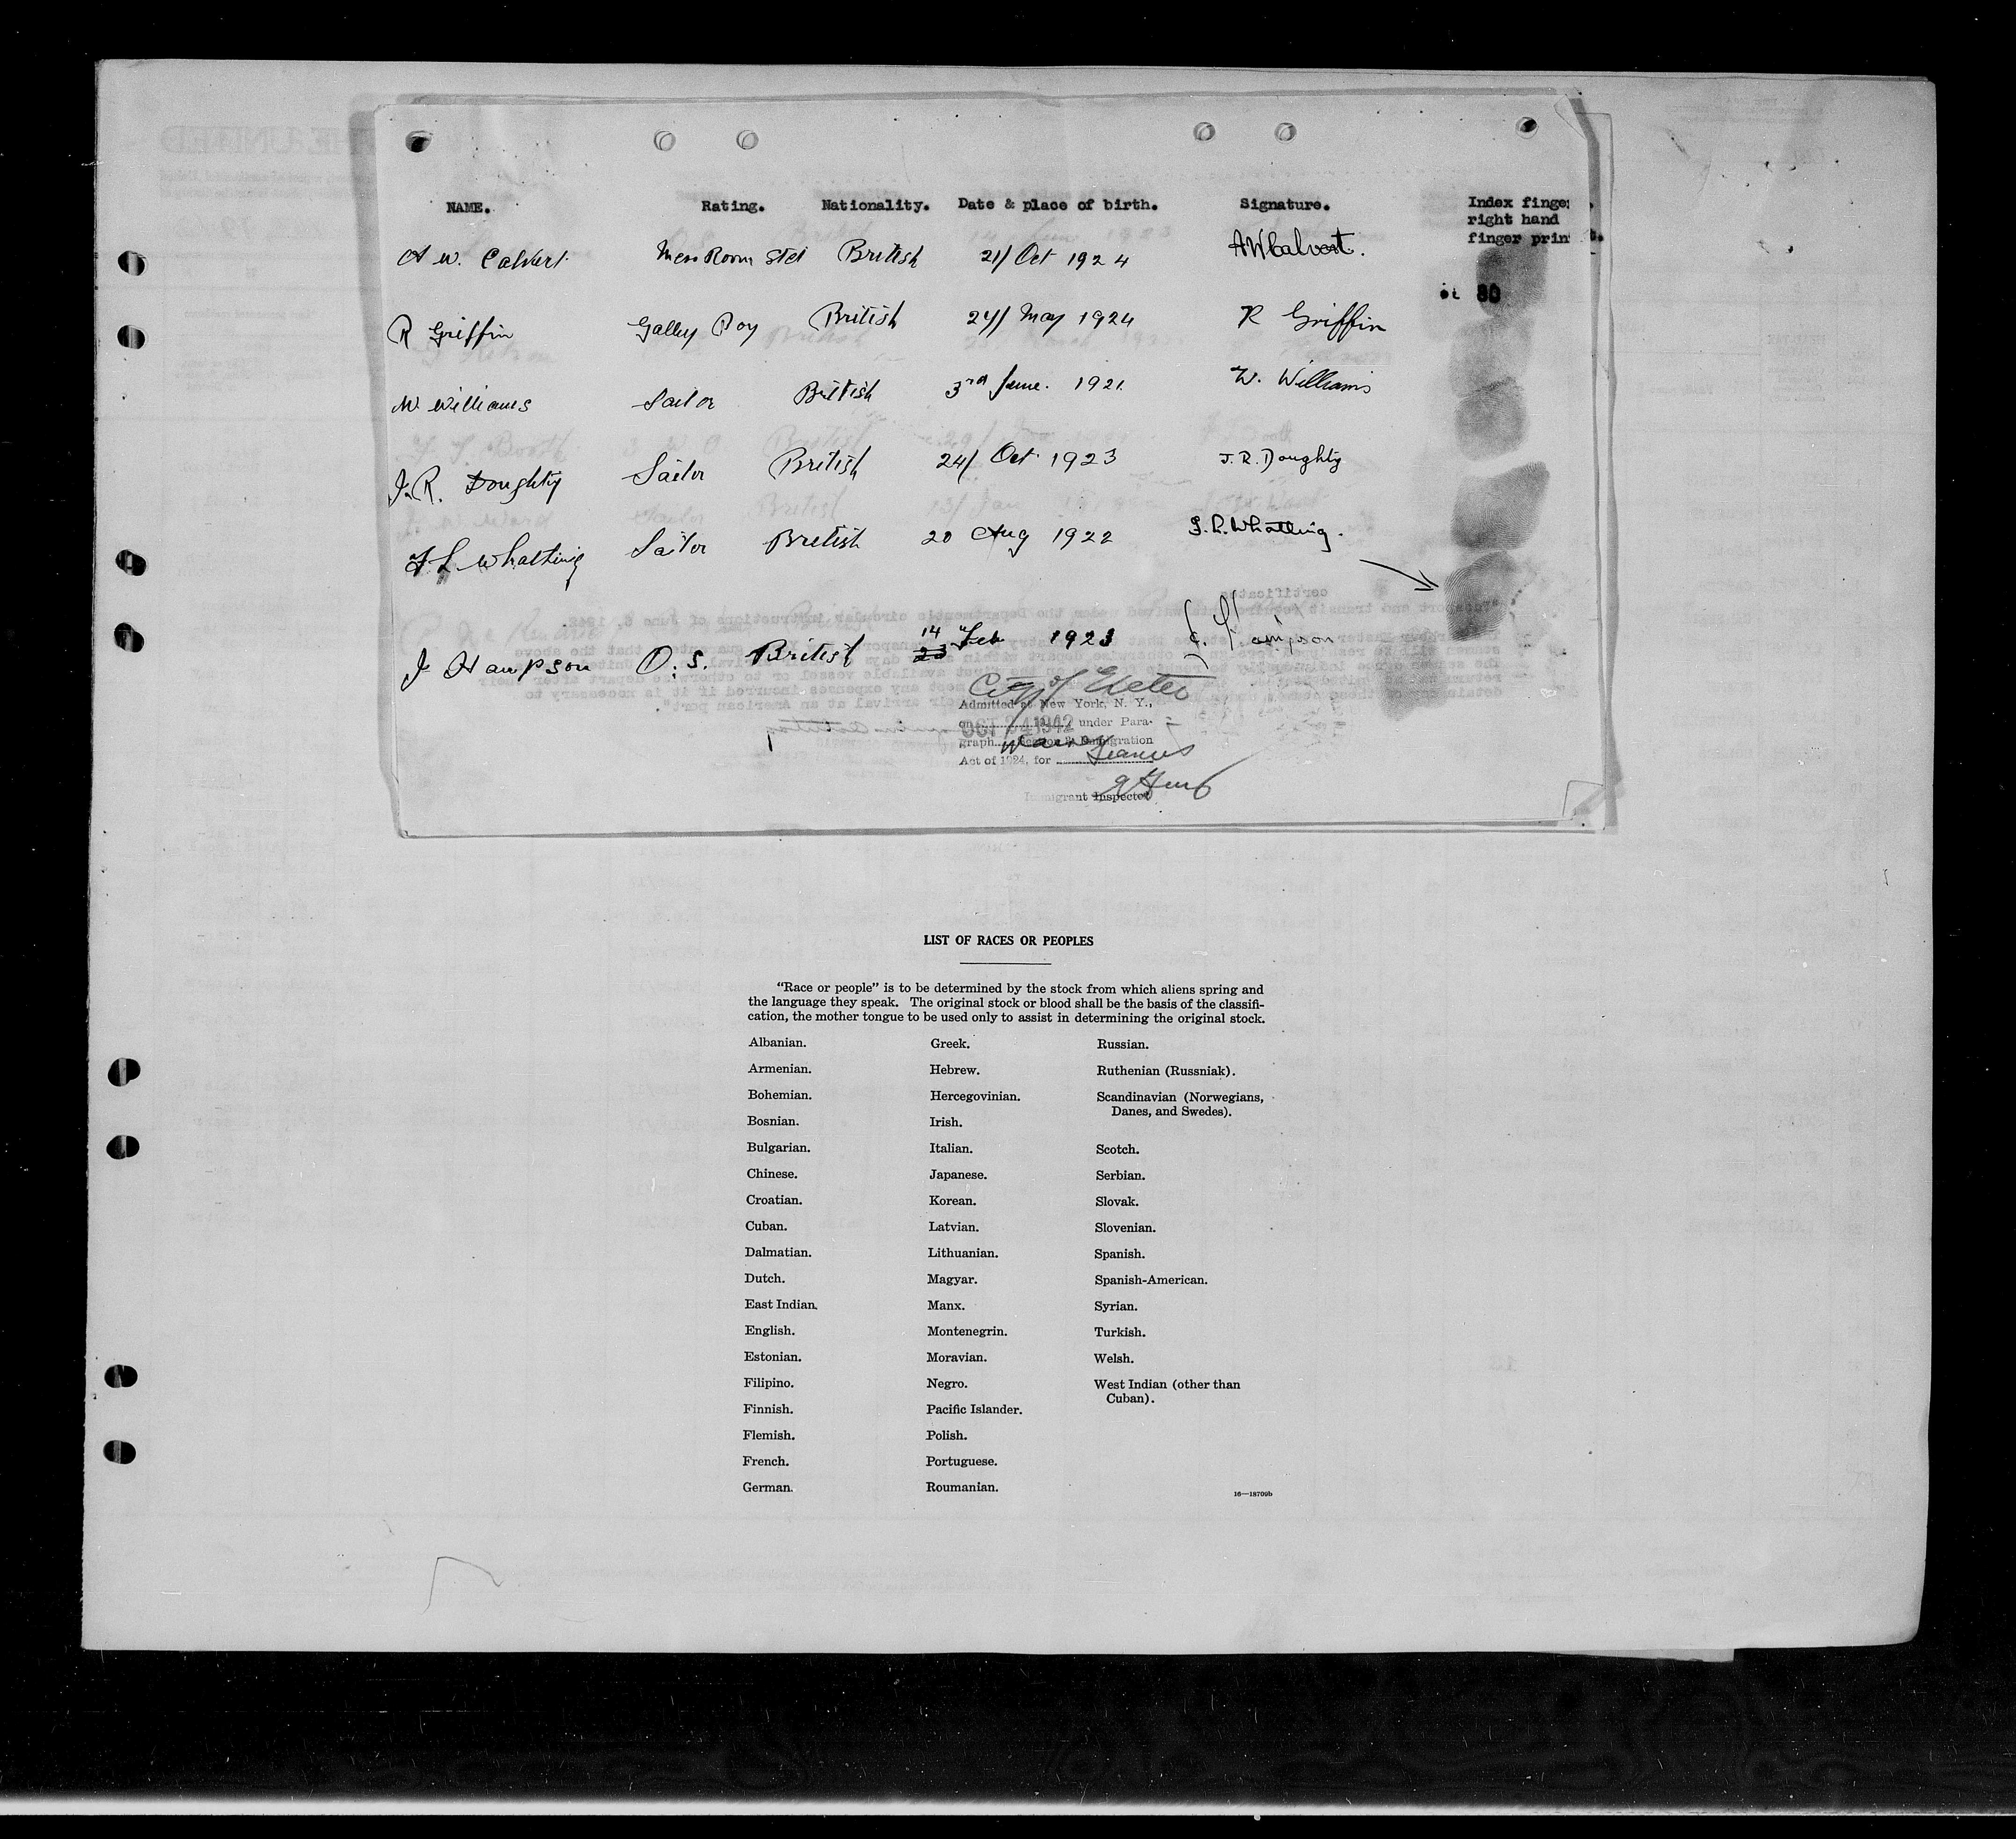 NAME. Rating. Nationality. Date & place of birth. Signature. Index finger
right hand
finger print.
A W. Calvert Mess Room Std British 21/ Oct 1924 AWCalvert.
R Griffin Galley Boy British 24/ May 1924 R Griffin
W Williams Sailor British 3rd June. 1921 W. Williams
J. R. Doughty Sailor British 24/ Oct 1923 J.R. Doughty
Sailor British 20 Aug 1922
J Hampson O.S. British 14 Feb 1923 J. Hampson
City of Exeter
Admitted at New York, N. Y.,
on OCT 24 1942 under Para-
graph Immigration
Act of 1924, for
Immigrant Inspector
LIST OF RACES OR PEOPLES
"Race or people" is to be determined by the stock from which aliens spring and
the language they speak. The original stock or blood shall be the basis of the classifi-
cation, the mother tongue to be used only to assist in determining the original stock.
Albanian. Greek. Russian.
Armenian. Hebrew. Ruthenian (Russniak).
Bohemian. Hercegovinian. Scandinavian (Norwegians,
Danes, and Swedes).
Bosnian. Irish.
Bulgarian. Italian. Scotch.
Chinese. Japanese. Serbian.
Croatian. Korean. Slovak.
Cuban. Latvian. Slovenian.
Dalmatian. Lithuanian. Spanish.
Dutch. Magyar. Spanish-American.
East Indian. Manx. Syrian.
English. Montenegrin. Turkish.
Estonian. Moravian. Welsh.
Filipino. Negro. West Indian (other than
Cuban).
Finnish. Pacific Islander.
Flemish. Polish.
French. Portuguese.
German. Roumanian.
16—18709b